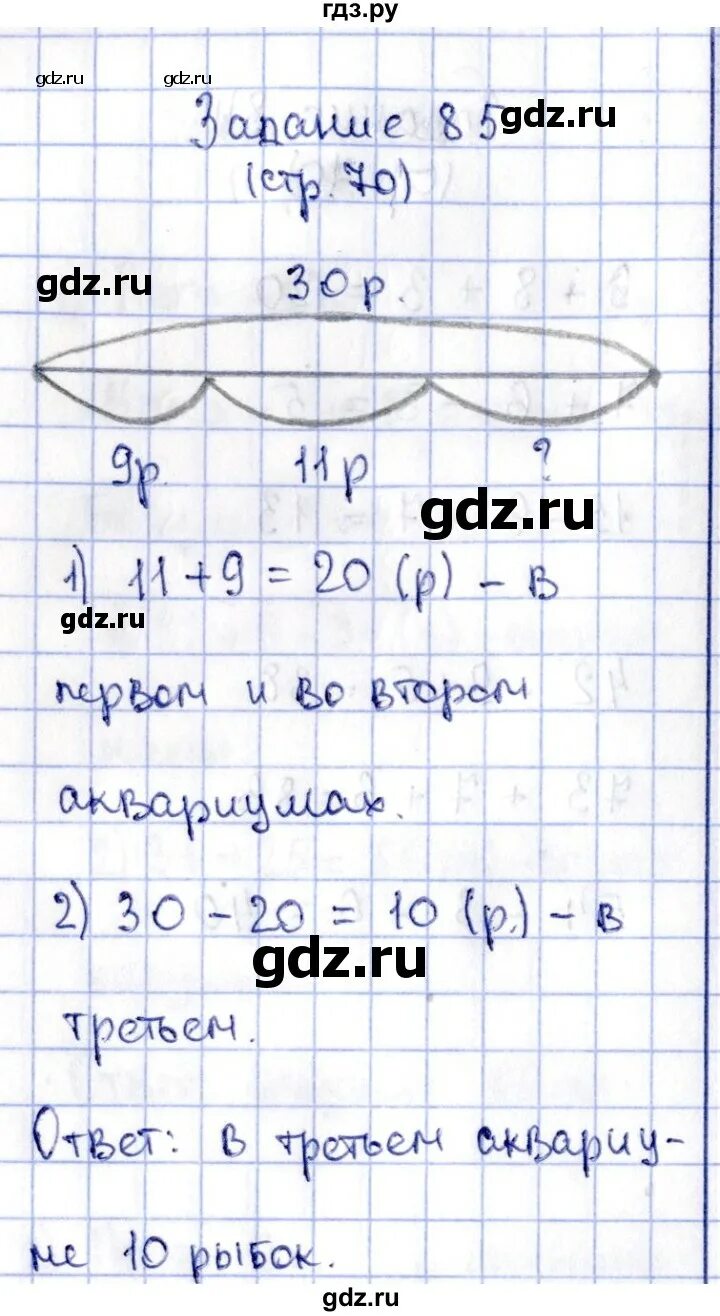 гдз.ру
gdz.ru gdz.ru
Задание 85 gdz.ru
(стр. 70)
gdz.ru 30 р.
9р. 11р ?
gdz.ru
1) 11 + 9 = 20 (р) - в
gdz.ru
первом и во втором
аквариумах.
2) 30 - 20 = 10 (р.) - в
gdz.ru
третьем.
Ответ: в третьем аквариу-
ме 10 рыбок.
gdz.ru